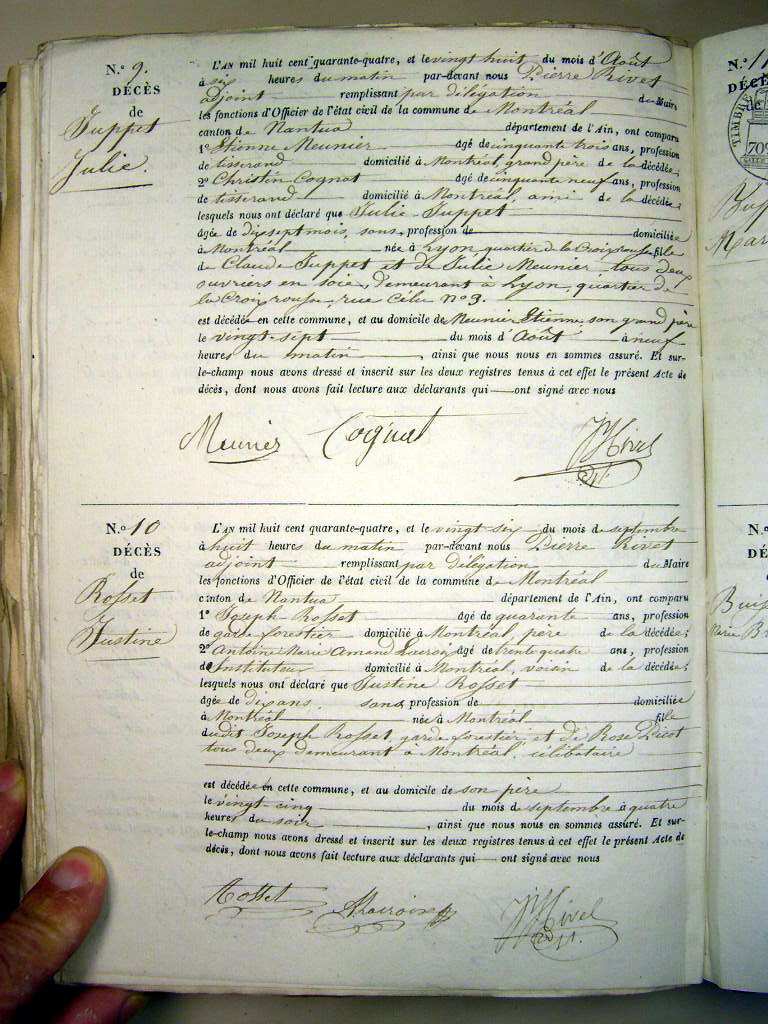 N.º 9.
DÉCÈS
de
Juppet
Julie.
L'AN mil huit cent quarante-quatre, et le vingt huit du mois d'Août
à six heures du matin par-devant nous Pierre Rivet
adjoint remplissant par délégation du Maire
les fonctions d'Officier de l'état civil de la commune de Montréal
canton de Nantua département de l'Ain, ont comparu
1º Etienne Meunier âgé de cinquante trois ans, profession
de tisserand domicilié à Montréal, grand père de la décédée;
2º Christin Cognat âgé de cinquante neuf ans, profession
de tisserand domicilié à Montréal, ami de la décédée;
lesquels nous ont déclaré que Julie Juppet
âgée de dix sept mois, sans profession de domiciliée
à Montréal née à Lyon quartier de la Croixrousse fille
de Claude Juppet et de Julie Meunier tous deux
ouvriers en soie, demeurant à Lyon, quartier de
la Croixrousse, rue Célu nº 3.
est décédée en cette commune, et au domicile de Meunier Etienne, son grand père
le vingt-sept du mois d'Août à neuf
heures du matin, ainsi que nous nous en sommes assuré. Et sur-
le-champ nous avons dressé et inscrit sur les deux registres tenus à cet effet le présent Acte de
décès, dont nous avons fait lecture aux déclarants qui ont signé avec nous
Meunier Cognat Rivet
N.º 10
DÉCÈS
de
Rosset
Justine
L'AN mil huit cent quarante-quatre, et le vingt-six du mois de septembre
à huit heures du matin par-devant nous Pierre Rivet
adjoint remplissant par délégation du Maire
les fonctions d'Officier de l'état civil de la commune de Montréal
canton de Nantua département de l'Ain, ont comparu
1º Joseph Rosset âgé de quarante ans, profession
de garde forestier domicilié à Montréal, père de la décédée;
2º Antoine Marie Amand âgé de trente quatre ans, profession
d'Instituteur domicilié à Montréal, voisin de la décédée;
lesquels nous ont déclaré que Justine Rosset
âgée de dix ans, sans profession de domiciliée
à Montréal née à Montréal fille
dudit Joseph Rosset, garde forestier et de Rose Picot
tous deux demeurant à Montréal, célibataire
est décédée en cette commune, et au domicile de son père
le vingt cinq du mois de septembre à quatre
heures du soir, ainsi que nous nous en sommes assuré. Et sur-
le-champ nous avons dressé et inscrit sur les deux registres tenus à cet effet le présent Acte de
décès, dont nous avons fait lecture aux déclarants qui ont signé avec nous
Rosset Rivet
N.º 11
DÉCÈS
TIMBRE
N.º
DÉ